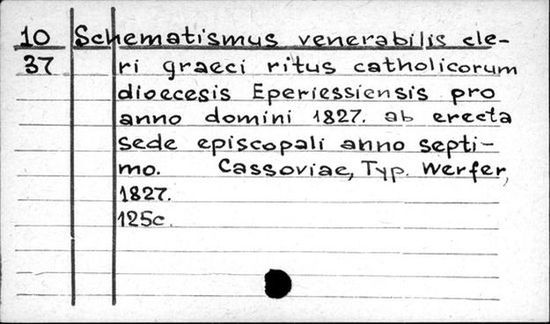 10 Schematismus venerabilis cle-
37 ri graeci ritus catholicorum
dioecesis Eperiessiensis pro
anno domini 1827. ab erecta
sede episcopali anno septi-
mo. Cassoviae, Typ. Werfer,
1827.
125c.